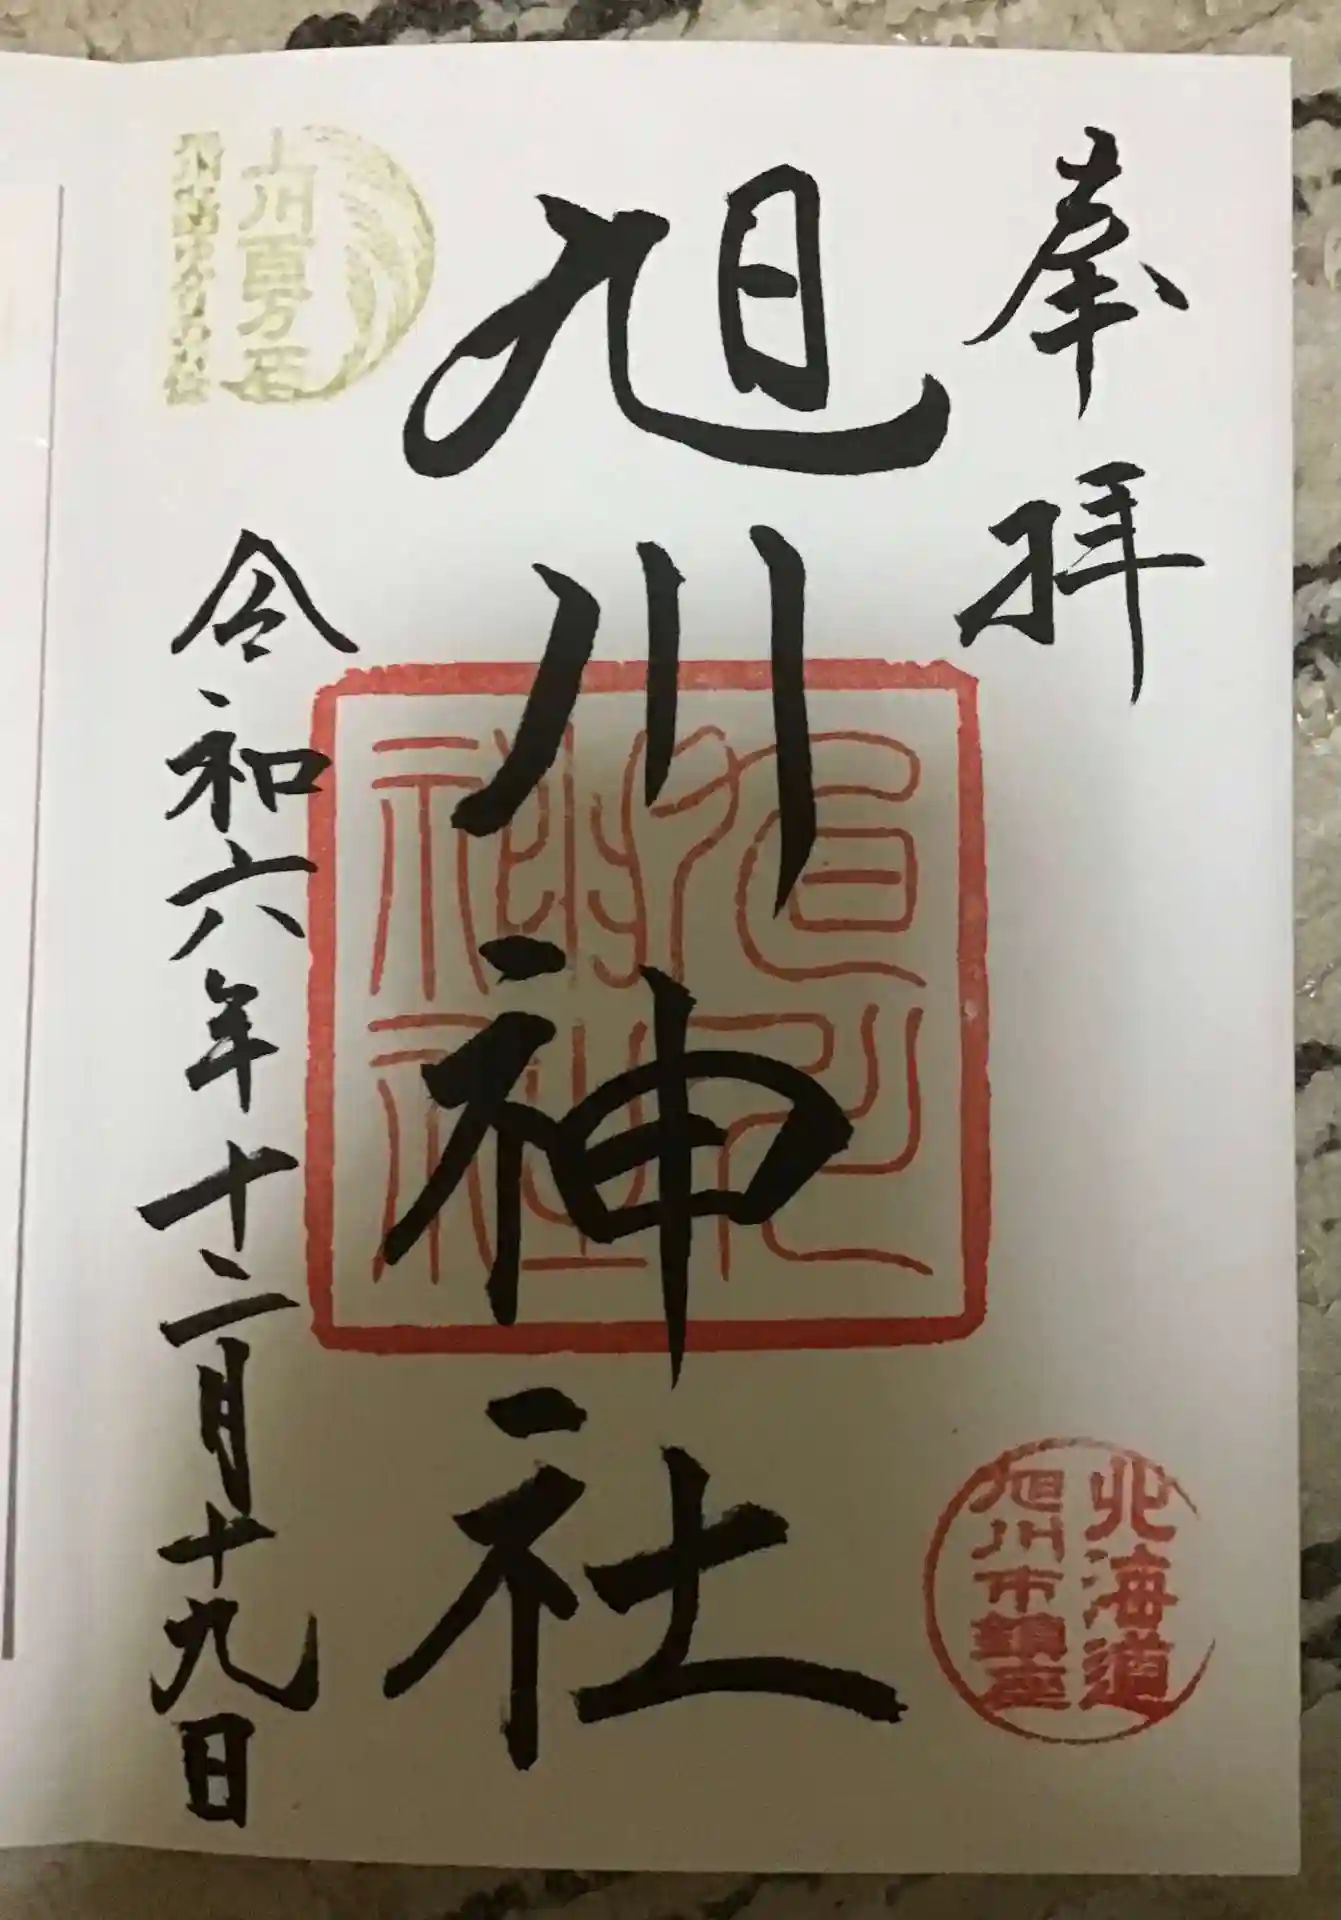 奉拝
旭川神社
旭川神社
北海道
旭川市鎮座
上川百万石
令和六年十二月十九日